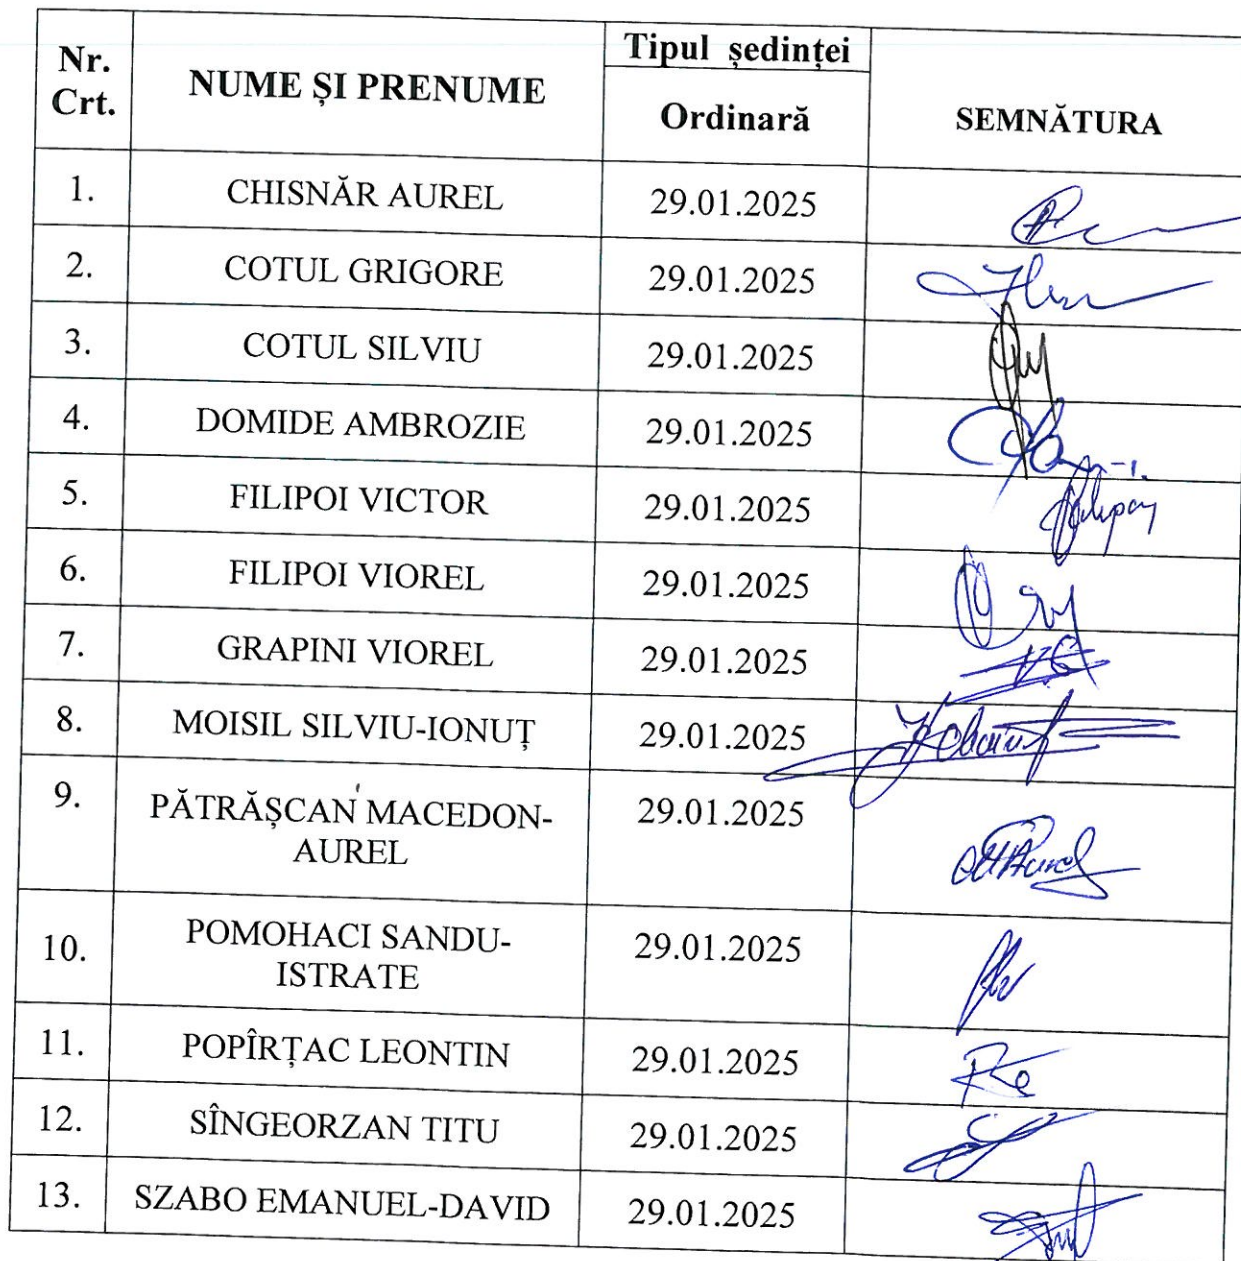 Nr. Crt. NUME ȘI PRENUME Tipul ședinței Ordinară SEMNĂTURA
1. CHISNĂR AUREL 29.01.2025
2. COTUL GRIGORE 29.01.2025
3. COTUL SILVIU 29.01.2025
4. DOMIDE AMBROZIE 29.01.2025
5. FILIPOI VICTOR 29.01.2025
6. FILIPOI VIOREL 29.01.2025
7. GRAPINI VIOREL 29.01.2025
8. MOISIL SILVIU-IONUȚ 29.01.2025
9. PĂTRĂȘCAN MACEDON- 29.01.2025
AUREL
10. POMOHACI SANDU- 29.01.2025
ISTRATE
11. POPÎRȚAC LEONTIN 29.01.2025
12. SÎNGEORZAN TITU 29.01.2025
13. SZABO EMANUEL-DAVID 29.01.2025